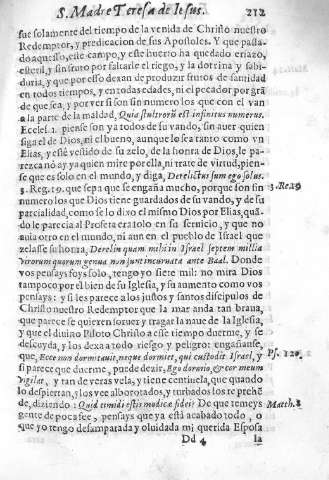 S. Madre Teresa de Iesus. 212
fue solamente del tiempo de la venida de Christo nuestro
Redemptor, y predicacion de sus Apostoles. Y que passa-
do aquesso, este campo, y este huerto ha quedado eriazo,
esteril, y sin fruto por faltarle el riego, y la dotrina y sabi-
duria, y que por esso dexan de produzir frutos de santidad
en todos tiempos, y en todas edades, ni el pecador por grã
de que sea, y por ver si son sin numero los que con el van
a la parte de la maldad, Quia stultorũ est infinitus numerus.
Eccles. 1. piense son ya todos de su vando, sin auer quien
siga el de Dios, ni el bueno, aunque lo sea tanto como vn
Elias, y esté vestido de su zelo, de la honra de Dios, le pa-
rezca nó ay ya quien mire por ella, ni trate de virtud, pien-
se que es solo en el mundo, y diga, Derelictus sum ego solus.
3. Reg. 19. que sepa que se engaña mucho, porque son sin 3. Re. 19
numero los que Dios tiene guardados de su vando, y de su
parcialidad, como se lo dixo el mismo Dios por Elias, quã-
do le parecia al Profeta era solo en su seruicio, y que no
auia otro en el mundo, ni aun en el pueblo de Israel que
zelasse su honra, Derelin quam mihi in Israel septem millia
virorum quorum genua non sunt incuruata ante Baal. Donde
vos pensays soys solo, tengo yo siete mil: no mira Dios
tampoco por el bien de su Iglesia, y su aumento como vos
pensays: y si les parece a los justos y santos discipulos de
Christo nuestro Redemptor que la mar anda tan braua,
que parece se quieren soruer y tragar la naue de la Iglesia,
y que el diuino Piloto Christo a esse tiempo duerme, y se
descuyda, y los dexa a todo riesgo y peligro: engañanse,
que, Ecce non dormitauit, neque dormiet, qui custodit Israel, y Ps. 120.
si parece que duerme, puede dezir, Ego dormio, & cor meum
vigilat, y tan de veras vela, y tiene centinela, que quando
lo despiertan, y los vee alborotados, y turbados los reprehẽ
de, diziendo: Quid timidi estis modicæ fidei? De que temeys Matth. 8
gente de poca fee, pensays que ya está acabado todo, o
que yo tengo desamparada y oluidada mi querida Esposa
Dd 4 la